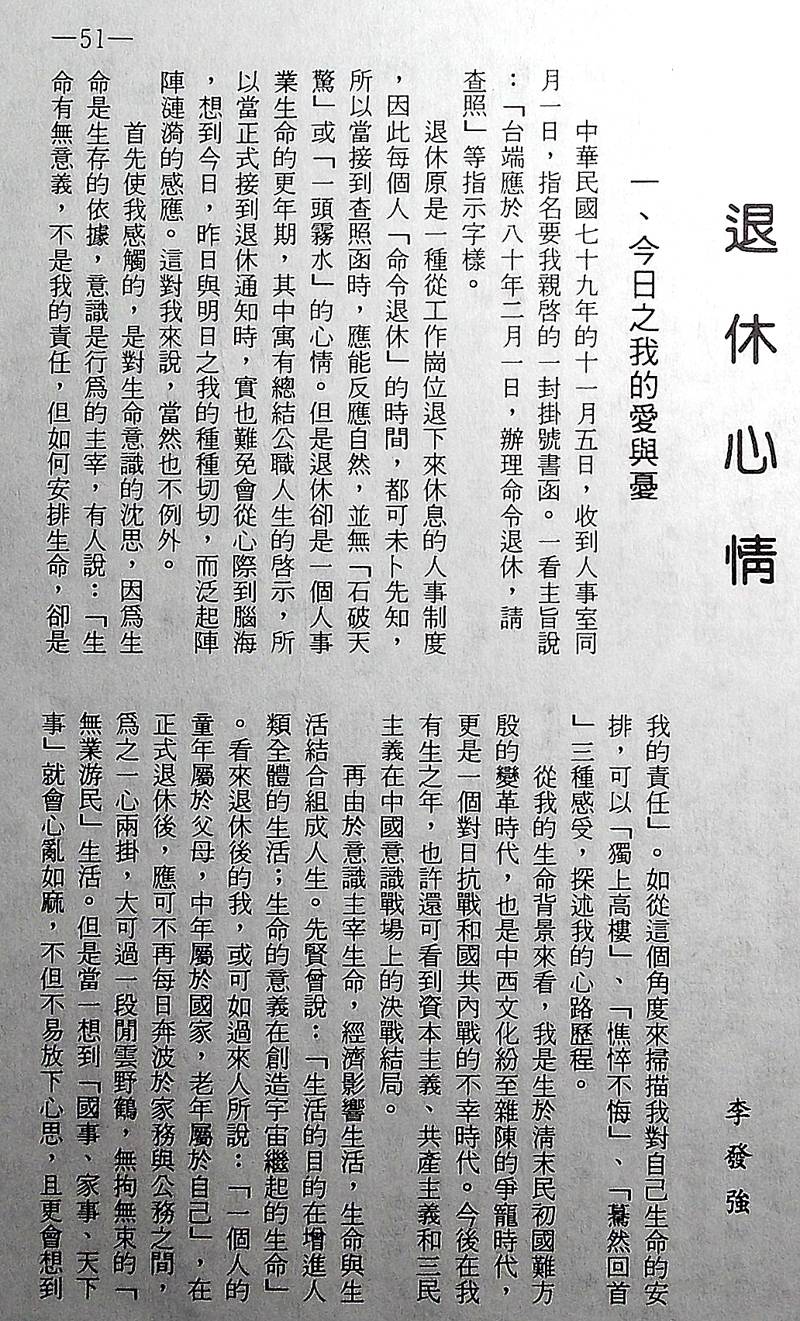 —51—
退休心情
李發強
一、今日之我的愛與憂
中華民國七十九年的十一月五日，收到人事室同
月一日，指名要我親啓的一封掛號書函。一看主旨說
：「台端應於八十年二月一日，辦理命令退休，請
查照」等指示字樣。
退休原是一種從工作崗位退下來休息的人事制度
，因此每個人「命令退休」的時間，都可未卜先知，
所以當接到查照函時，應能反應自然，並無「石破天
驚」或「一頭霧水」的心情。但是退休卻是一個人事
業生命的更年期，其中寓有總結公職人生的啓示，所
以當正式接到退休通知時，實也難免會從心際到腦海
，想到今日，昨日與明日之我的種種切切，而泛起陣
陣漣漪的感應。這對我來說，當然也不例外。
首先使我感觸的，是對生命意識的沈思，因爲生
命是生存的依據，意識是行爲的主宰，有人說：「生
命有無意義，不是我的責任，但如何安排生命，卻是
我的責任」。如從這個角度來掃描我對自己生命的安
排，可以「獨上高樓」、「憔悴不悔」、「驀然回首
」三種感受，探述我的心路歷程。
從我的生命背景來看，我是生於淸末民初國難方
殷的變革時代，也是中西文化紛至雜陳的爭寵時代，
更是一個對日抗戰和國共內戰的不幸時代。今後在我
有生之年，也許還可看到資本主義、共產主義和三民
主義在中國意識戰場上的決戰結局。
再由於意識主宰生命，經濟影響生活，生命與生
活結合組成人生。先賢曾說：「生活的目的在增進人
類全體的生活；生命的意義在創造宇宙繼起的生命」
。看來退休後的我，或可如過來人所說：「一個人的
童年屬於父母，中年屬於國家，老年屬於自己」，在
正式退休後，應可不再每日奔波於家務與公務之間，
爲之一心兩掛，大可過一段閒雲野鶴，無拘無束的「
無業游民」生活。但是當一想到「國事、家事、天下
事」就會心亂如麻，不但不易放下心思，且更會想到